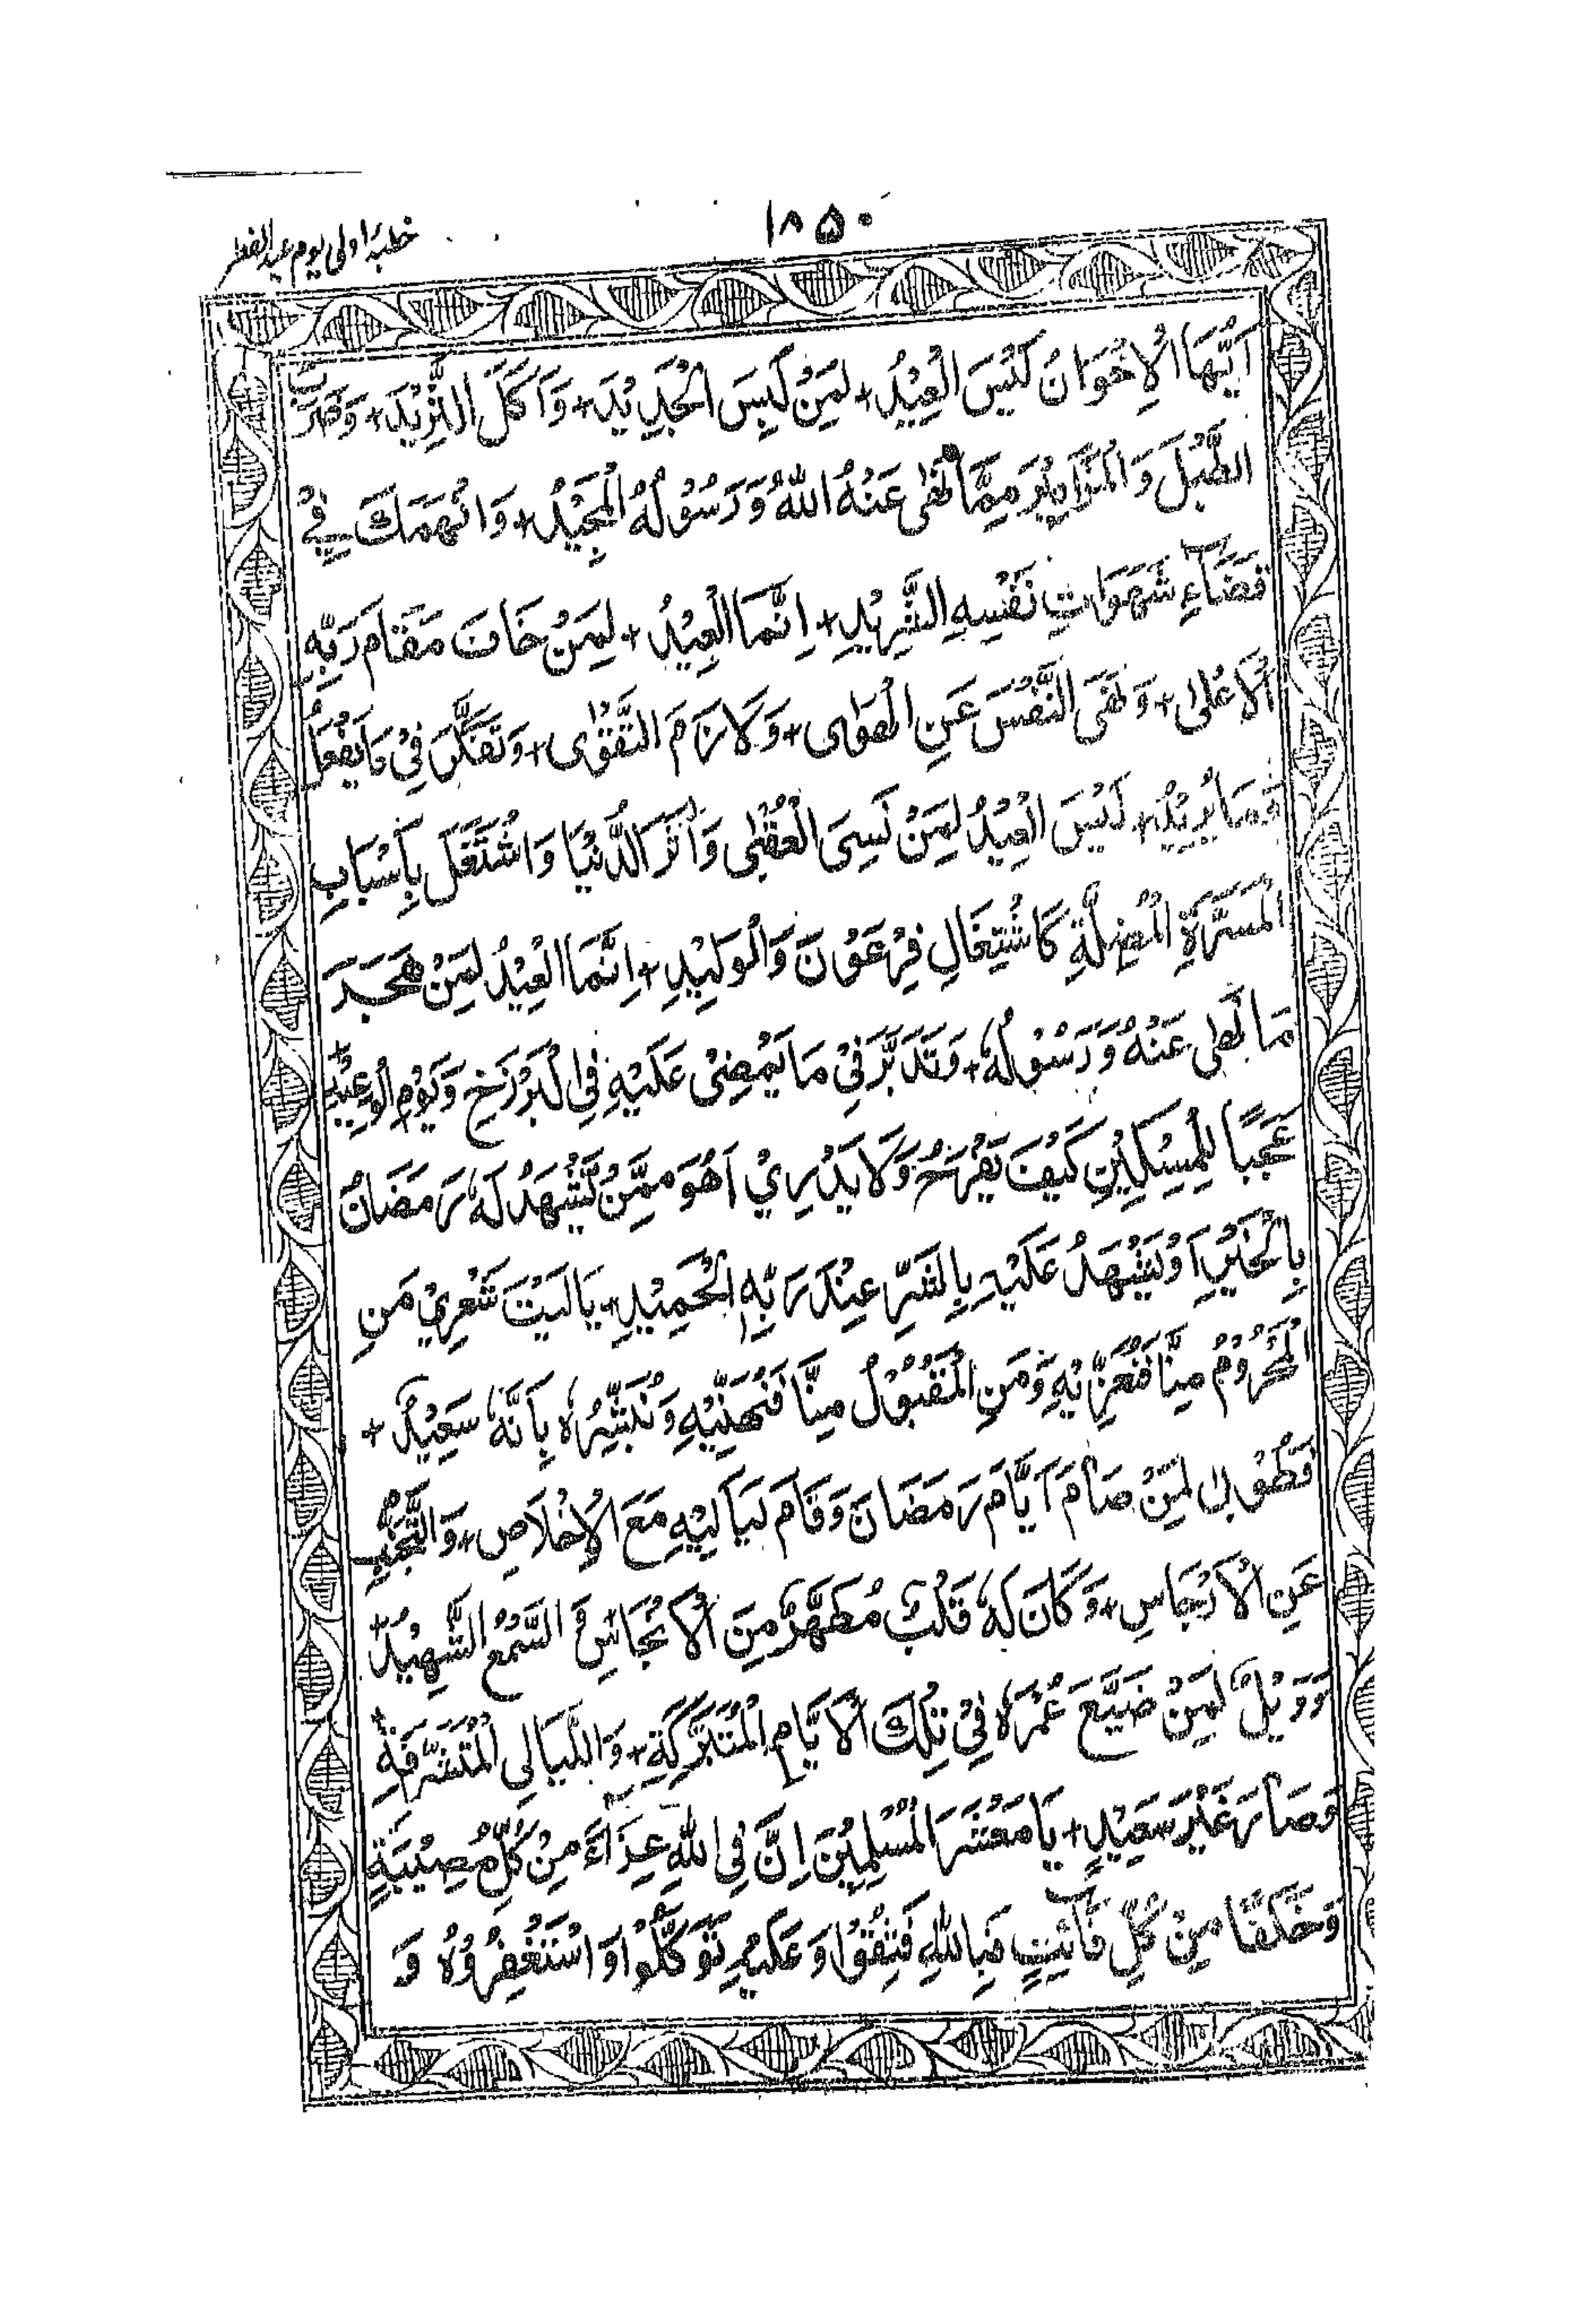 ۱۸۵۰
خطبۂ اولی یوم عید الفطر
اَيُّهَا الْاِخْوَانُ لَيْسَ الْعِيْدُ + لِمَنْ لَبِسَ الْجَدِيْدَ + وَاَكَلَ الثَّرِيْدَ + وَضَرَبَ
الطَّبْلَ وَالْمَزَامِيْرَ مِمَّا نَهٰى عَنْهُ اللهُ وَرَسُوْلُهُ الْمَجِيْدُ + وَانْهَمَكَ فِيْ
قَضَآءِ شَهَوَاتِ نَفْسِهِ الشَّرِيْدِ + اِنَّمَا الْعِيْدُ + لِمَنْ خَافَ مَقَامَ رَبِّهِ
الْاَعْلٰى + وَنَهَى النَّفْسَ عَنِ الْهَوٰى + وَلَازَمَ التَّقْوٰى + وَتَفَكَّرَ فِيْ مَا يَفْعَلُ
وَمَا يُرِيْدُ + لَيْسَ الْعِيْدُ لِمَنْ نَسِيَ الْعُقْبٰى وَاٰثَرَ الدُّنْيَا وَاشْتَغَلَ بِاَسْبَابِ
الْمَسَرَّةِ الْمُضِلَّةِ كَاشْتِغَالِ فِرْعَوْنَ وَالْوَلِيْدِ + اِنَّمَا الْعِيْدُ لِمَنْ هَجَرَ
مَا نَهٰى عَنْهُ وَرَسُوْلُهٗ + وَتَدَبَّرَ فِيْ مَا يَمْضِىْ عَلَيْهِ فِي الْبَرْزَخِ وَيَوْمِ الْوَعِيْدِ +
عَجَبًا لِلْمِسْكِيْنِ كَيْفَ يَفْرَحُ وَلَا يَدْرِيْ اَهُوَ مِمَّنْ يَّشْهَدُ لَهٗ رَمَضَانُ
بِالْخَيْرِ اَوْ يَشْهَدُ عَلَيْهِ بِالشَّرِّ عِنْدَ رَبِّهِ الْحَمِيْدِ + يَا لَيْتَ شَعْرِيْ مَنِ
الْمَحْرُوْمُ مِنَّا فَنُعَزِّيْهِ وَمَنِ الْمَقْبُوْلُ مِنَّا فَنُهَنِّيْهِ وَنُبَشِّرُهٗ بِاَنَّهٗ سَعِيْدٌ +
فَطُوْبٰى لِمَنْ صَامَ اَيَّامَ رَمَضَانَ وَقَامَ لَيَالِيْهِ مَعَ الْاِخْلَاصِ + وَالتَّجَنُّبِ
عَنِ الْاَرْجَاسِ + وَكَانَ لَهٗ قَلْبٌ مُطَهَّرٌ مِنَ الْاَنْجَاسِ وَ السَّمْعُ الشَّهِيْدُ +
وَوَيْلٌ لِمَنْ ضَيَّعَ عُمْرَهٗ فِيْ تِلْكَ الْاَيَّامِ الْمُتَبَرَّكَةِ + وَاللَّيَالِي الْمُتَشَرَّفَةِ +
وَصَارَ غَيْرَ سَعِيْدٍ + يَا مَعْشَرَ الْمُسْلِمِيْنَ اِنَّ فِي اللهِ عِزَاءً مِنْ كُلِّ مُصِيْبَةٍ
وَخَلَفًا مِنْ كُلِّ فَآئِتٍ فَبِاللهِ فَثِقُوْا وَعَلَيْهِ تَوَكَّلُوْا وَاسْتَغْفِرُوْهُ وَ